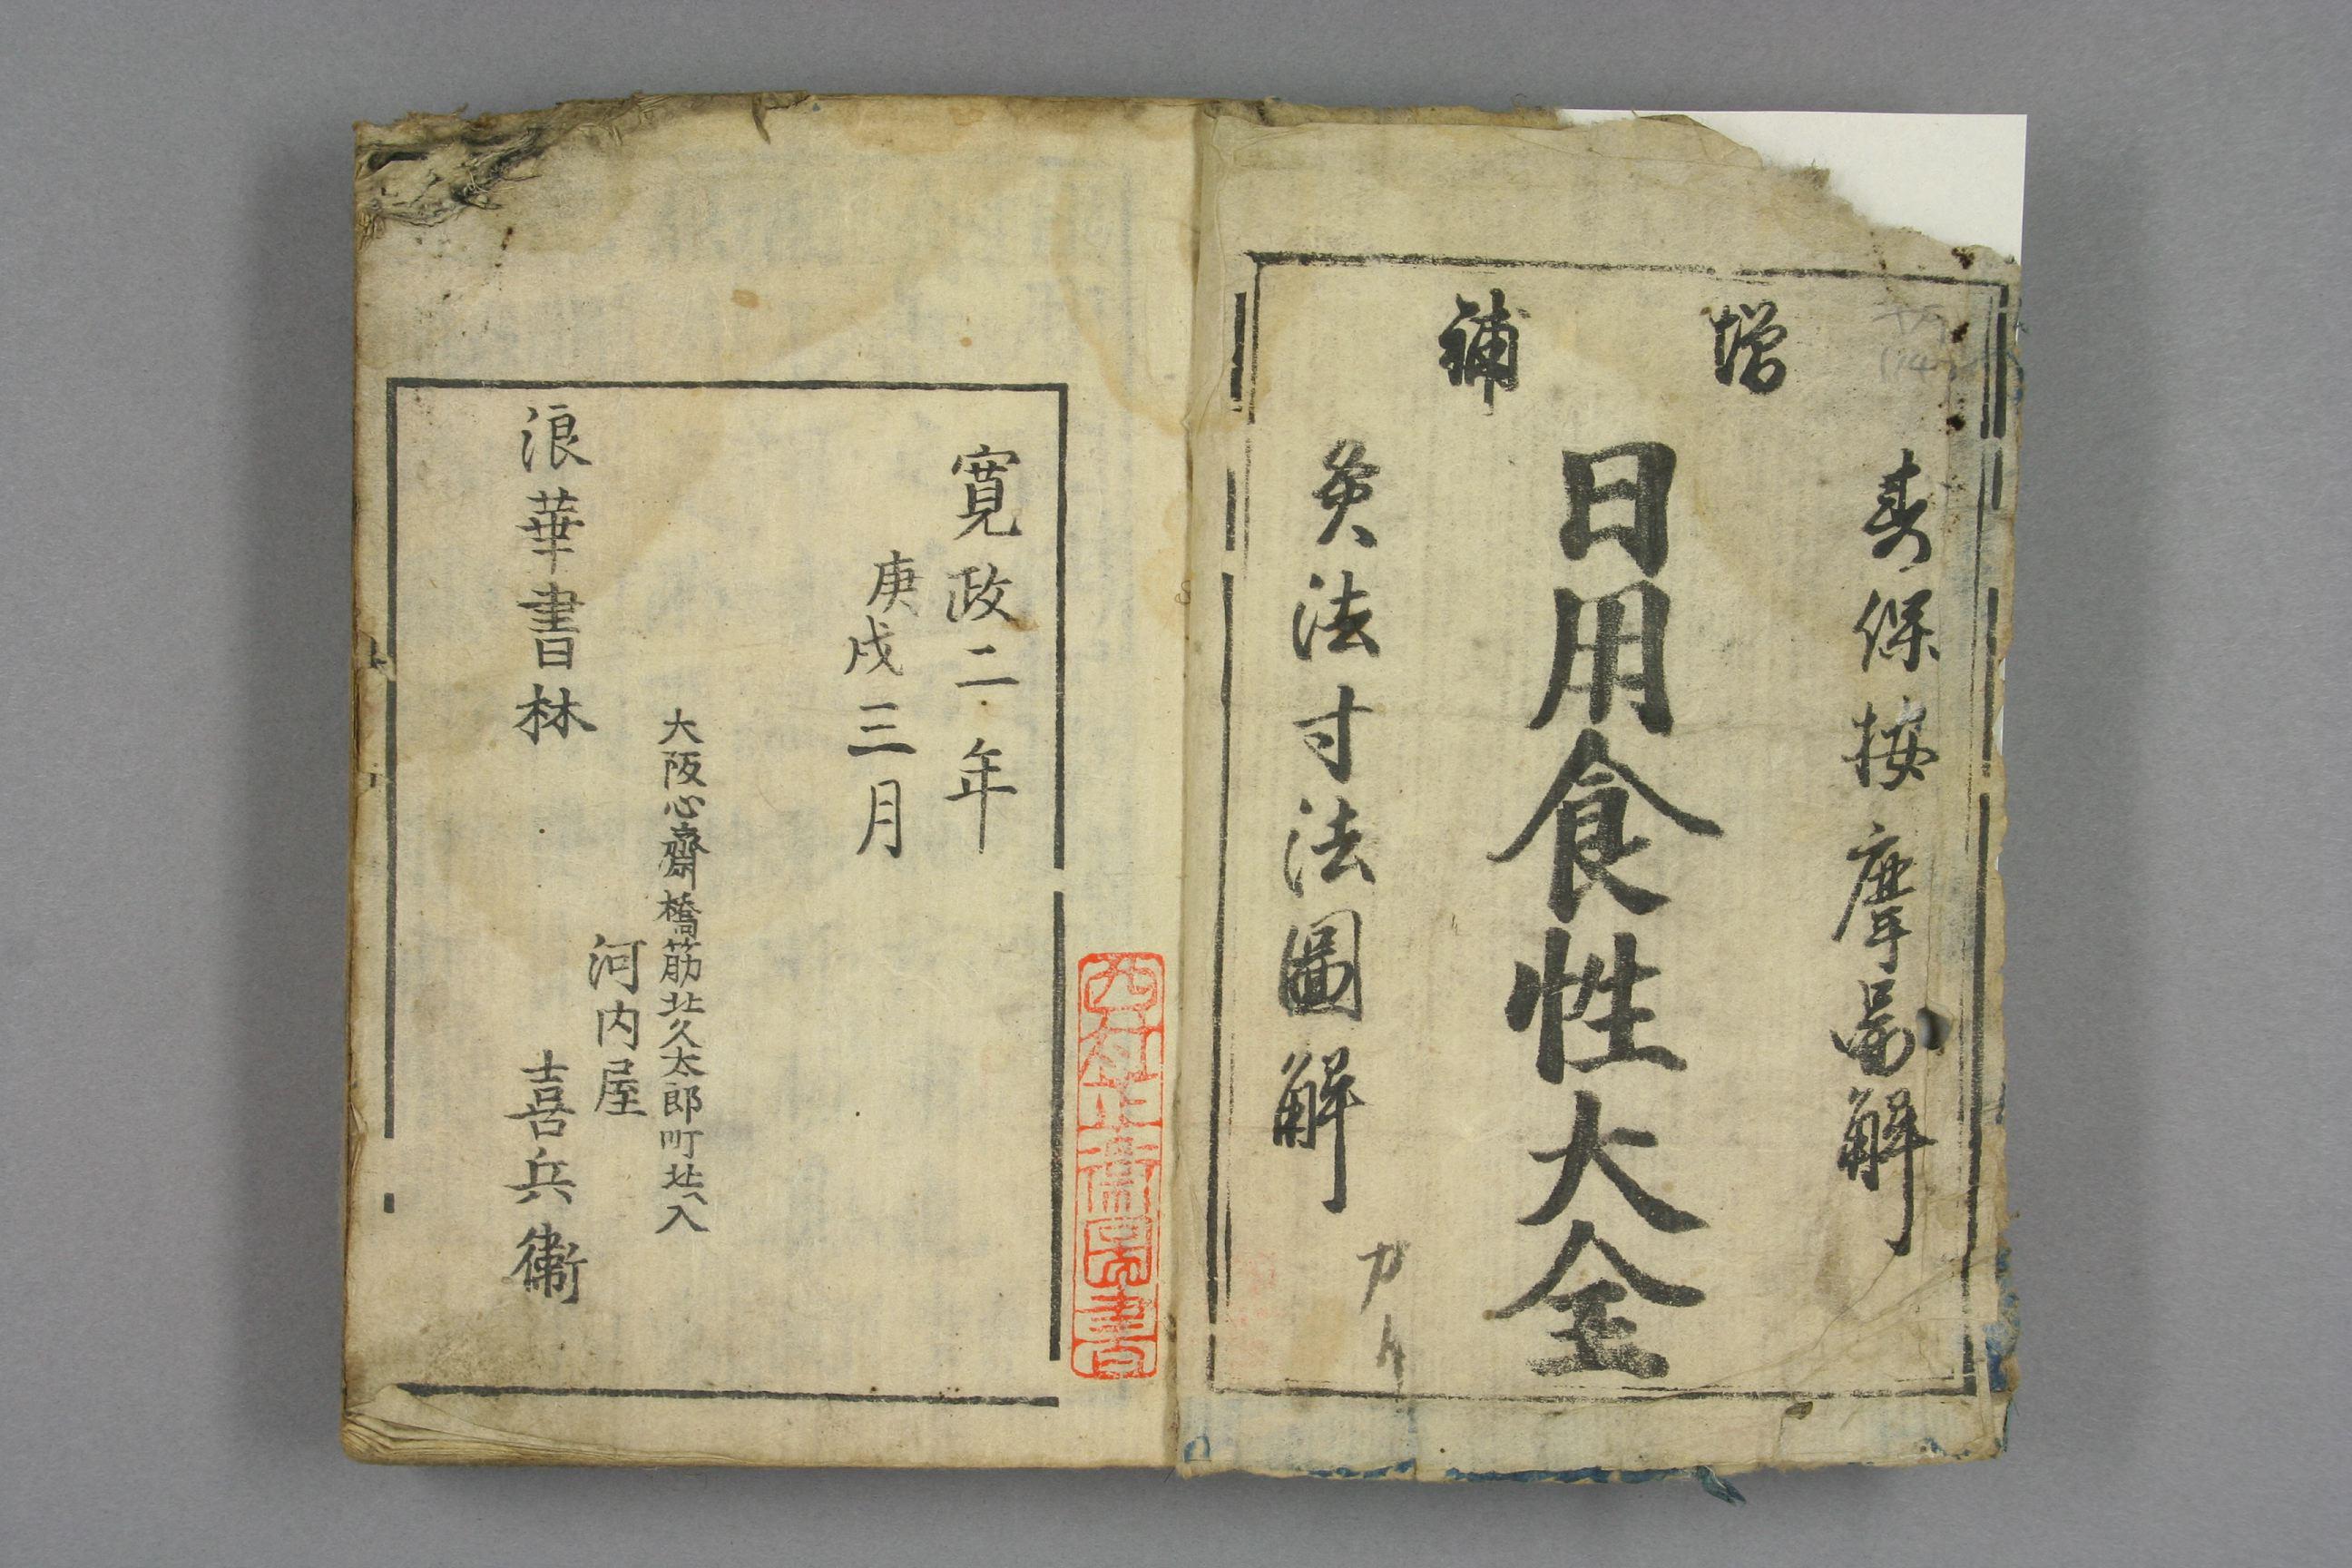 増補
寿保按摩啚解
日用食性大全
灸法寸法圖解
寛政二年
庚戌三月
大阪心齋橋筋北久太郎町北ヘ入
河内屋
浪華書林
喜兵衞